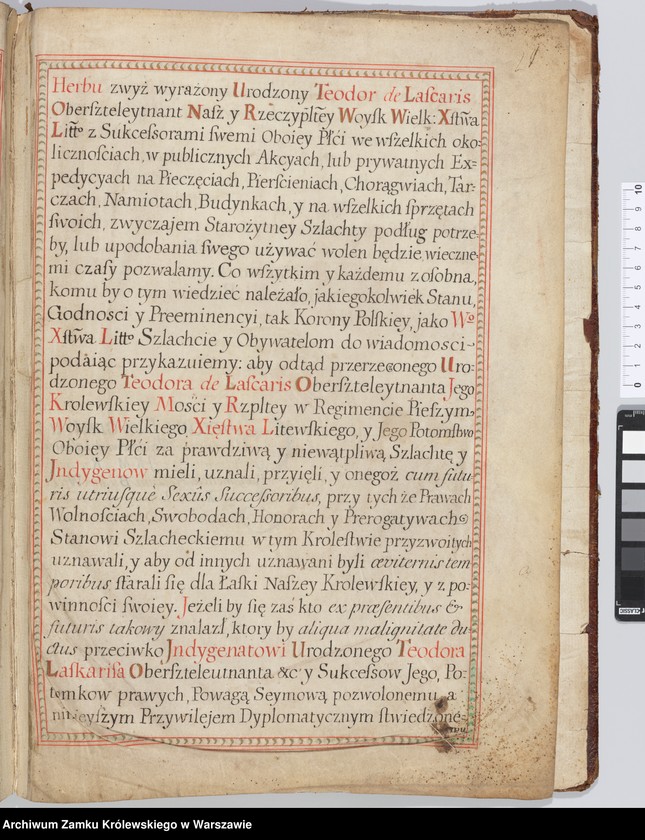 11
Herbu zwyż wyrażony Urodzony Teodor de Laſcaris
Oberſzteleytnant Naſz y Rzeczypltey Woyſk Wielk: Xſtwa
Litto z Sukceſsorami ſwemi Oboiey Płći we wſzelkich oko=
licznościach, w publicznych Akcyach, lub prywatnych Ex=
pedycyach na Pieczęciach, Pierscieniach, Chorągwiach, Tar=
czach, Namiotach, Budynkach, y na wſzelkich ſprzętach
ſwoich, zwyczajem Starożytney Szlachty podług potrze=
by, lub upodobania ſwego używać wolen będzie, wieczne=
mi czaſy pozwalamy. Co wſzytkim y każdemu z oſobna,
komu by o tym wiedzieć należało, jakiegokolwiek Stanu,
Godności y Preeminencyi, tak Korony Polſkiey, jako Wo
Xſtwa Litto Szlachcie y Obywatelom do wiadomości
podaiąc przykazuiemy: aby odtąd przerzeconego Uro=
dzonego Teodora de Laſcaris Oberſzteleytnanta Jego
Krolewſkiey Mości y Rzpltey w Regimencie Pieſzym,
Woyſk Wielkiego Xięſtwa Litewſkiego, y Jego Potomſtwo
Oboiey Płći za prawdziwą y niewątpliwą Szlachtę y
Jndygenow mieli, uznali, przyięli, y onegoż cum futu
ris utriuſque Sexûs Succeſsoribus, przy tych że Prawach
Wolnościach, Swobodach, Honorach y Prerogatywach
Stanowi Szlacheckiemu w tym Króleſtwie przyzwoitych
uznawali, y aby od innych uznawani byli æviternis tem
poribus ſtarali się dla Łaſki Naſzey Krolewſkiey, y z po=
winności ſwoiey. Jeżeli by się zaś kto ex præſentibus &
futuris takowy znalazł, ktory by aliqua malignitate du=
ctus przeciwko Jndygenatowi Urodzonego Teodora
Laſkariſa Oberſzteleutnanta &c y Sukceſsow Jego, Po=
temkow prawych, Powagą Seymową pozwolonemu, a
nineyſzym Przywilejem Dyplomatycznym ſtwiedzone=
mu
0 1 2 3 4 5 6 7 8 9 10
CLASSIC
Archiwum Zamku Królewskiego w Warszawie